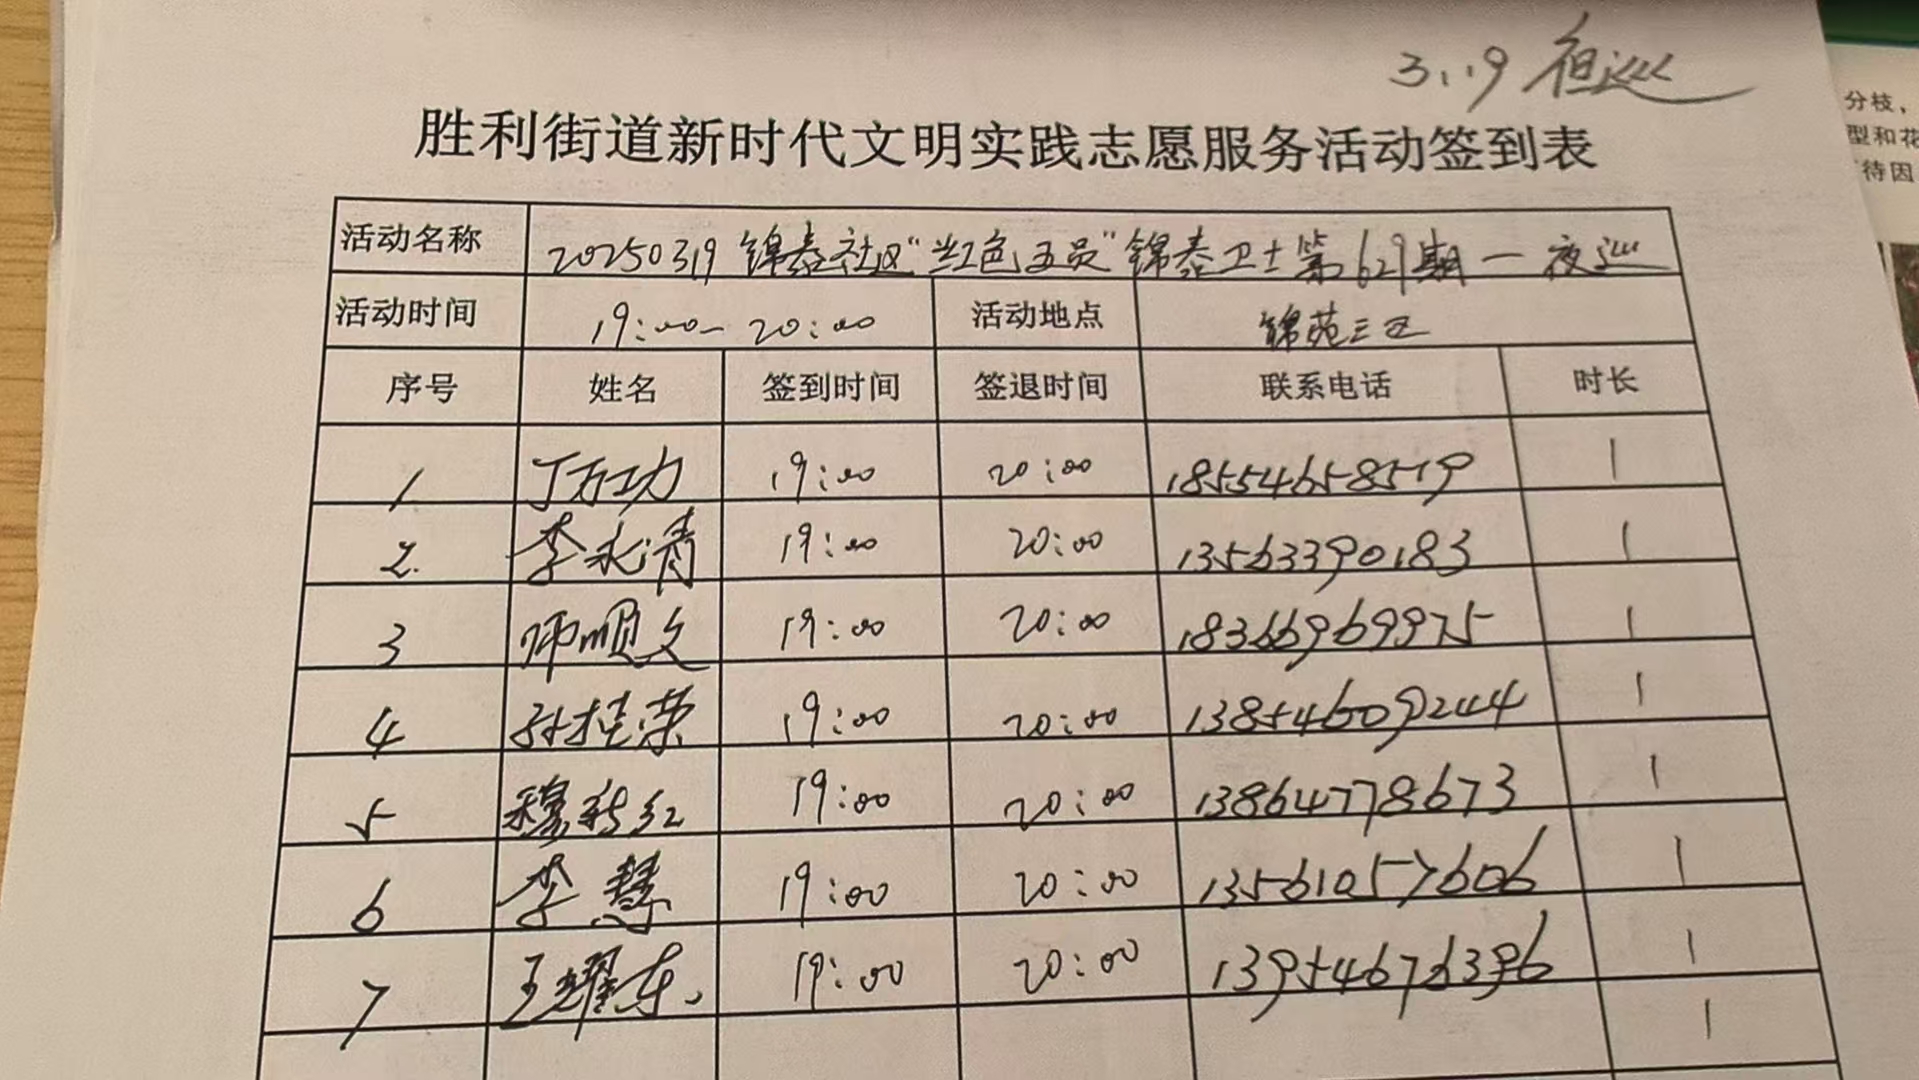 3.19 夜巡
胜利街道新时代文明实践志愿服务活动签到表
活动名称 20250319 锦泰社区“红色五员”锦泰卫士第629期一夜巡
活动时间 19:00-20:00 活动地点 锦苑三区
序号 姓名 签到时间 签退时间 联系电话 时长
1 丁万功 19:00 20:00 18554658519 1
2. 李永清 19:00 20:00 13563390183 1
3 师顺文 19:00 20:00 18366969975 1
4 孙桂荣 19:00 20:00 13854609244 1
5 穆秀红 19:00 20:00 13864778673 1
6 李慧 19:00 20:00 13561057606 1
7 王耀东 19:00 20:00 13954676396 1
1
分枝，
型和花
待因